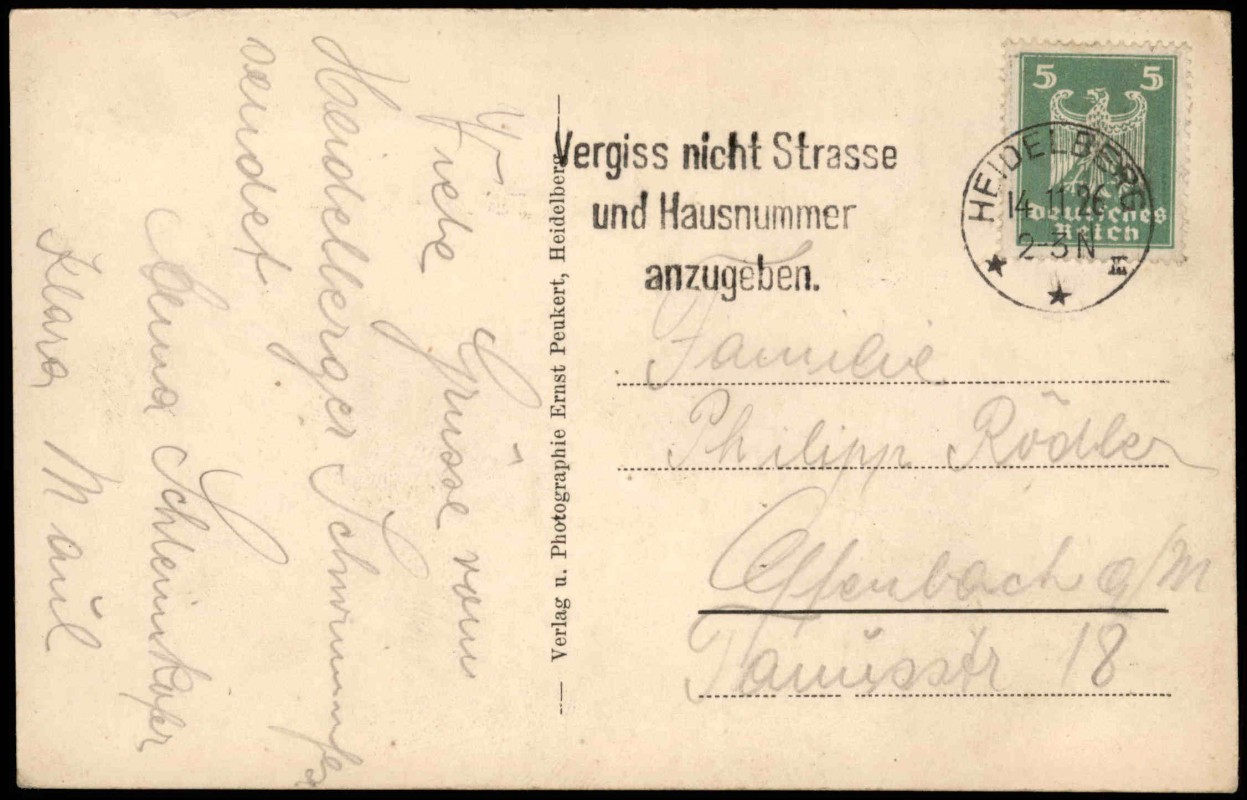 Viele Grüsse vom
Haeidelberger Schwimmfes
sendet
Anna Schleinkofer
Klara Maul
Verlag u. Photographie Ernst Peukert, Heidelberg
Vergiss nicht Strasse
und Hausnummer
anzugeben.
5 5
Deutsches
Reich
HEIDELBERG
14.11.26
2-3 N
Familie
Philipp Rödler
Offenbach a/M
Taunusstr 18